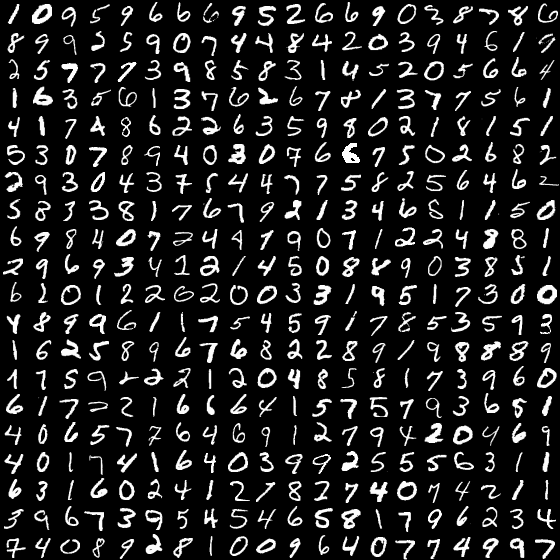 1 0 9 5 9 6 6 6 9 5 2 6 6 9 0 3 8 7 8 6
8 9 9 2 5 9 0 7 4 4 8 4 2 0 3 9 4 6 1 9
2 5 7 7 7 3 9 8 5 8 3 1 4 5 2 0 5 6 6 4
1 6 3 5 6 1 3 7 6 2 6 7 8 1 3 7 7 5 6 1
4 1 7 4 8 6 2 2 6 3 5 9 8 0 2 1 8 1 5 1
5 3 0 7 8 9 4 0 3 0 7 6 6 7 5 0 2 6 8 2
2 9 3 0 4 3 7 5 4 4 7 7 5 8 2 5 6 4 6 2
5 8 3 3 8 1 7 6 7 9 2 1 3 4 6 8 1 1 5 0
6 9 8 4 0 7 2 4 4 7 9 0 7 1 2 2 4 8 8 1
2 9 6 9 3 4 1 2 1 4 5 0 8 8 9 0 3 8 5 1
6 2 0 1 2 2 6 2 0 0 3 3 1 9 5 1 7 3 0 0
4 8 9 9 6 1 1 7 5 4 5 9 1 7 8 5 3 5 9 3
1 6 2 5 8 9 6 7 6 8 2 2 8 9 1 9 8 8 8 9
1 7 5 9 2 2 2 1 2 0 4 8 5 8 1 7 3 9 6 0
6 1 7 2 2 1 6 6 6 4 1 5 7 5 7 9 3 6 5 1
4 0 6 5 7 7 6 4 6 9 1 2 7 9 4 2 0 4 6 9
4 0 1 7 4 1 6 4 0 3 9 9 2 5 5 5 6 3 1 1
6 3 1 6 0 2 4 1 2 7 8 2 7 4 0 7 4 2 1 1
3 9 6 7 3 9 5 4 5 4 6 5 8 1 7 9 6 2 3 4
7 4 0 8 9 2 8 1 0 0 9 6 4 0 7 7 4 9 9 7